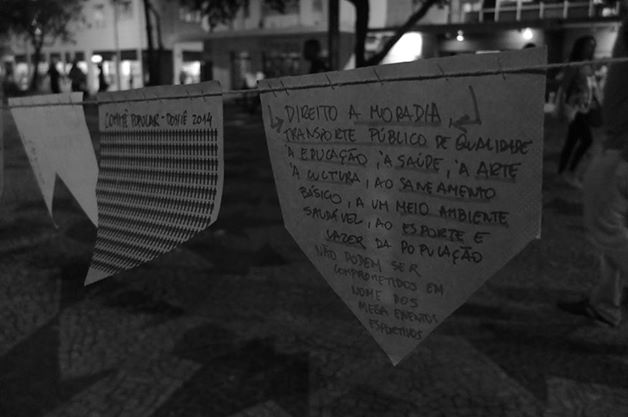 COMITÊ POPULAR - DOSSIÊ 2014
DIREITO A MORADIA,
TRANSPORTE PÚBLICO DE QUALIDADE
À EDUCAÇÃO, À SAÚDE, À ARTE
À CULTURA, AO SANEAMENTO
BÁSICO, A UM MEIO AMBIENTE
SAUDÁVEL, AO ESPORTE E
LAZER DA POPULAÇÃO
NÃO PODEM SER
COMPROMETIDOS EM
NOME DOS
MEGA EVENTOS
ESPORTIVOS